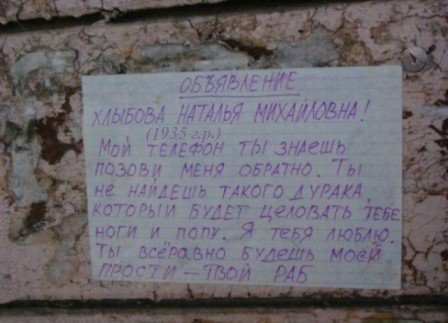 ОБЪЯВЛЕНИЕ
ХЛЫБОВА НАТАЛЬЯ МИХАЙЛОВНА!
(1935 г.р.)
МОЙ ТЕЛЕФОН ТЫ ЗНАЕШЬ
ПОЗОВИ МЕНЯ ОБРАТНО. ТЫ
НЕ НАЙДЕШЬ ТАКОГО ДУРАКА,
КОТОРЫЙ БУДЕТ ЦЕЛОВАТЬ ТЕБЕ
НОГИ И ПОПУ. Я ТЕБЯ ЛЮБЛЮ.
ТЫ ВСЁРАВНО БУДЕШЬ МОЕЙ
ПРОСТИ — ТВОЙ РАБ